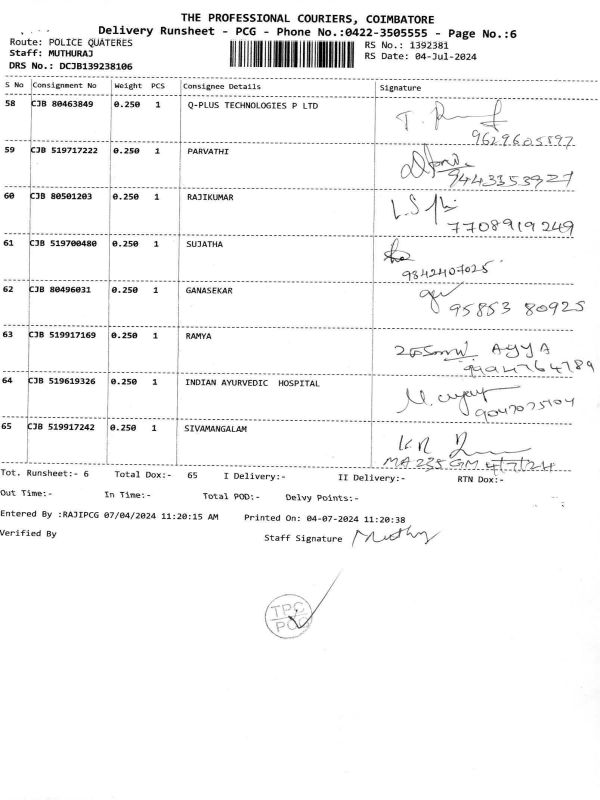 THE PROFESSIONAL COURIERS, COIMBATORE
Delivery Runsheet - PCG - Phone No.:0422-3505555 - Page No.:6
Route: POLICE QUATERES
RS No.: 1392381
Staff: MUTHURAJ
RS Date: 04-Jul-2024
DRS No.: DCJB139238106
S No Consignment No Weight PCS Consignee Details Signature
58 CJB 80463849 0.250 1 Q-PLUS TECHNOLOGIES P LTD
9629605597
59 CJB 519717222 0.250 1 PARVATHI
9443353927
60 CJB 80501203 0.250 1 RAJIKUMAR
7708919249
61 CJB 519700480 0.250 1 SUJATHA
9342407025
62 CJB 80496031 0.250 1 GANASEKAR
95853 80925
63 CJB 519917169 0.250 1 RAMYA
AYYA
9994764789
64 CJB 519619326 0.250 1 INDIAN AYURVEDIC HOSPITAL
65 CJB 519917242 0.250 1 SIVAMANGALAM
K.R
MA 235 GM 4/7/24
Tot. Runsheet:- 6 Total Dox:- 65 I Delivery:- II Delivery:- RTN Dox:-
Out Time:- In Time:- Total POD:- Delvy Points:-
Entered By :RAJIPCG 07/04/2024 11:20:15 AM Printed On: 04-07-2024 11:20:38
Verified By Staff Signature Muthu
TPC
PCG